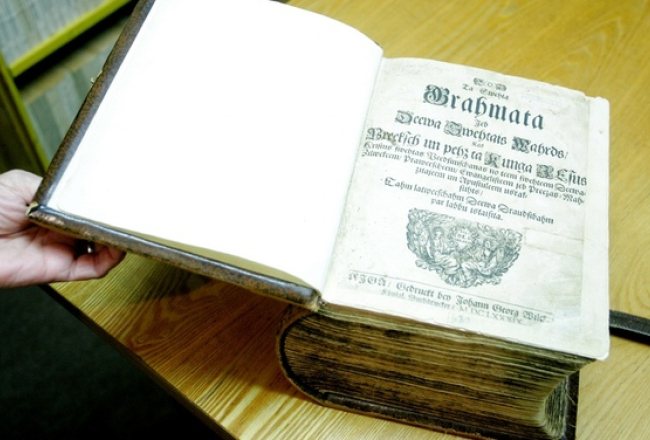 Ta Swehta
Grahmata
Jeb
Deewa Swehtais Wahrds/
Kas
Preeksch un pehz ta Kunga JEsus
Kristus swehtas Peedsimschanas no teem swehteem Deewa-
Zilwekeem/ Praweescheem/ Ewangelisteem jeb Preezas-Mah-
zitajeem un Apustuleem usrak-
stihts/
Tahm Latweeschahm Deewa Draudsibahm
par labbu istaisita.
RIGA/ Gedruckt bey Johann Georg Wilcken/
M.DC.LXXXIX.